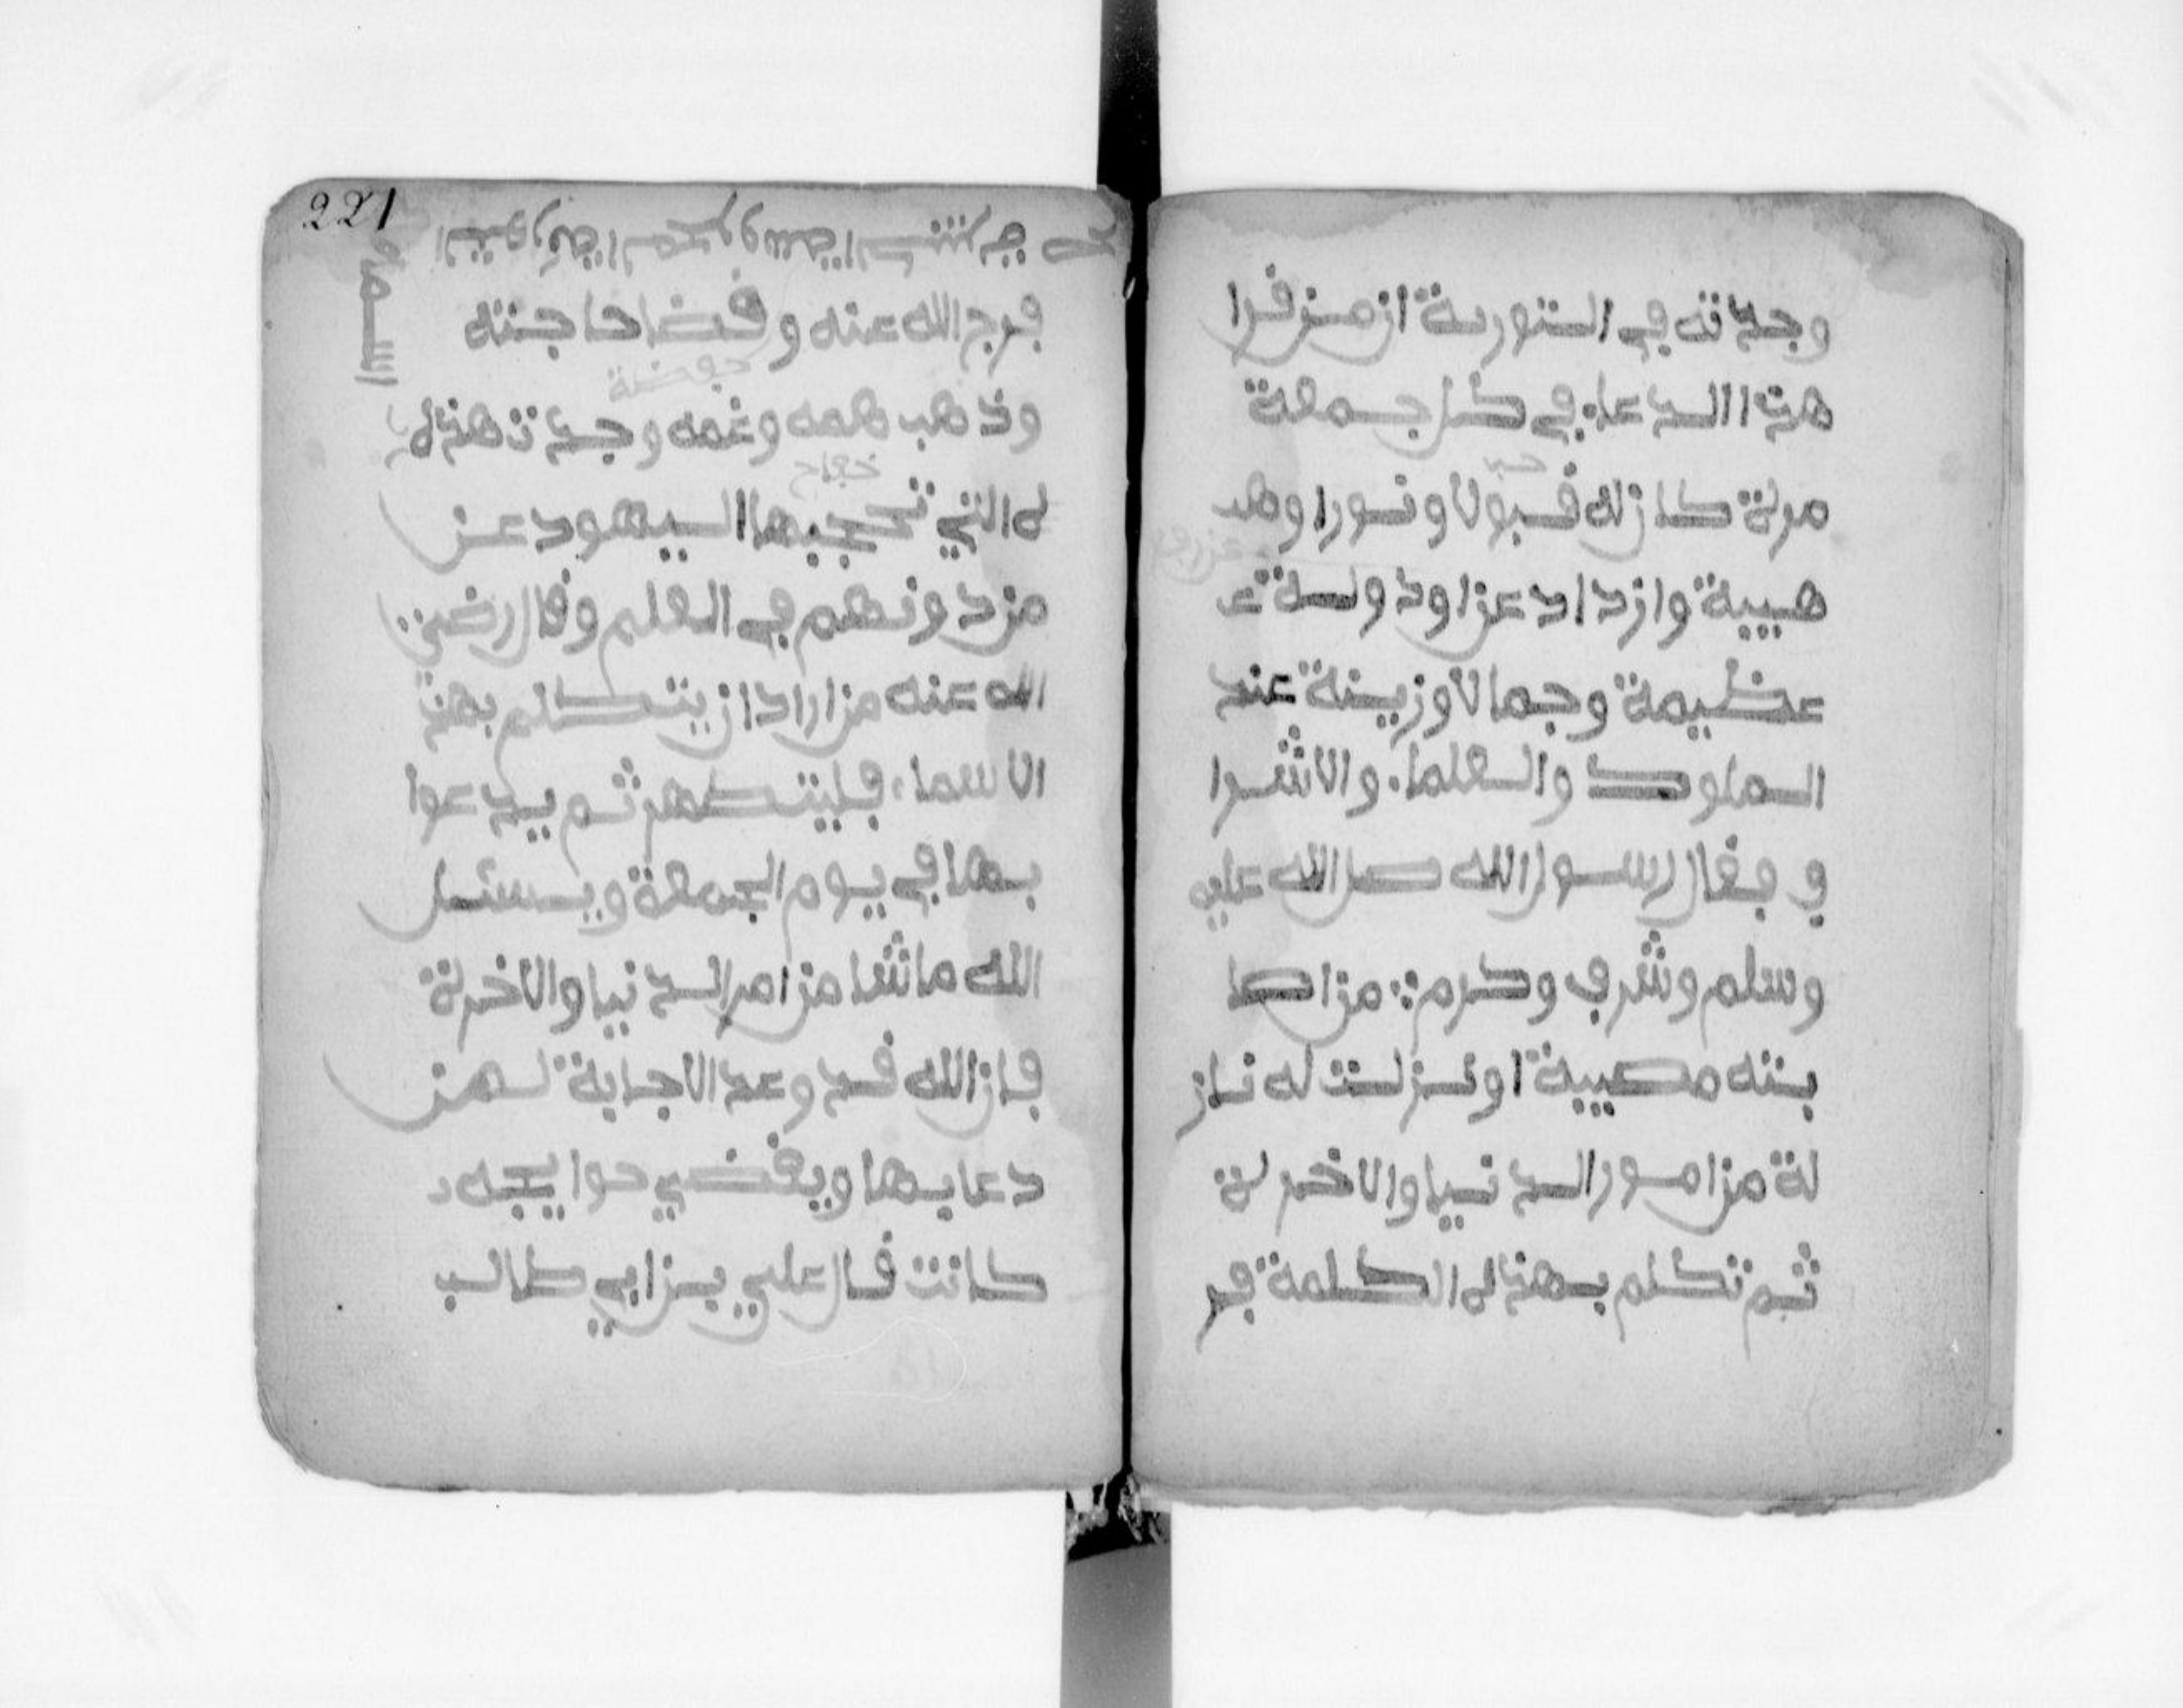 وجدته في التورية ان من قرا
هذا الدعاء في كل جمعة
مرة كان له قبولا ونورا وهد
هيبة وازداد عزا ودولة ع
عظيمة وجمالا وزينة عند
الملوك والعلماء والاشرا
ف فقال رسول الله صل الله عليه
وسلم وشرف وكرم من اصا
بته مصيبة او نزلت له ناز
لة من امور الدنيا والاخرة
ثم تكلم بهذه الكلمة فر
221
فرج الله عنه وقضا حاجته
وذهب همه وغمه وجدت هذه
ه التي تحجبها اليهود عن
من دونهم في العلم وقال رضي
الله عنه من اراد ان يتكلم بهذ
الاسماء فليتطهر ثم يدعوا
بها في يوم الجمعة ويسئل
الله ما شا من امر الدنيا والاخرة
فان الله قد وعد الاجابة لمن
دعا بها ويقضي حوايجه
كانت قال علي بن ابي طالب